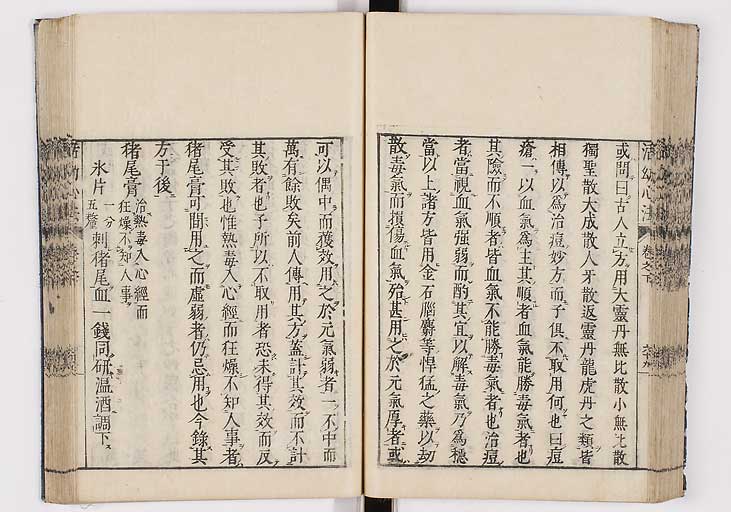 或問曰古人立方用大靈丹無比散小無比散
獨聖散大成散人牙散返靈丹龍虎丹之類皆
相傳以爲治痘妙方而子俱不取用何也曰痘
瘡一以血氣爲主其順者血氣能勝毒氣者也
其險而不順者皆血氣不能勝毒氣者也治痘
者當視血氣強弱而酌其宜以解毒氣乃爲穩
當以上諸方皆用金石腦麝等悍猛之藥以劫
散毒氣而損傷血氣殆甚用之於元氣厚者或
可以偶中而獲效用之於元氣弱者一不中而
萬有餘敗矣前人傳用其方蓋計其效而不計
其敗者也予所以不取用者恐未得其效而反
受其敗也惟熱毒入心經而狂燥不知人事者
猪尾膏可間用之而虛弱者仍忌用也今錄其
方于後
猪尾膏 治熱毒入心經而狂燥不知人事
氷片 一分五釐 刺猪尾血一錢同研温酒調下
活幼心法 卷之下